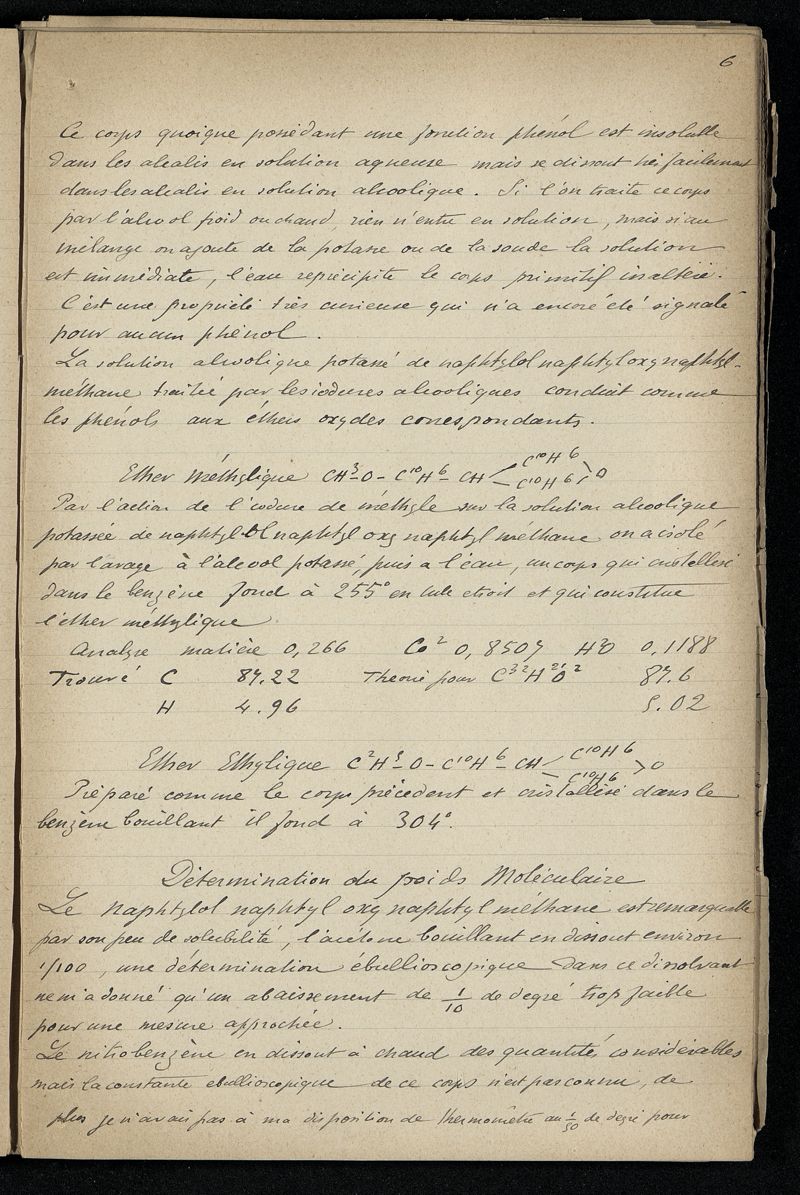 6
Ce corps quoique possédant une fonction phénol est insoluble
dans les alcalis en solution aqueuse mais se dissout très facilement
dans les alcalis en solution alcoolique. Si l'on traite ce corps
par l'alcool froid ou chaud, rien n'entre en solution, mais si au
mélange on ajoute de la potasse ou de la soude la solution
est immédiate, l'eau reprécipite le corps primitif inaltéré.
C'est une propriété très curieuse qui n'a encore été signalé
pour aucun phénol.
La solution alcoolique potassé de naphtylol naphtyloxynaphtyl-
méthane traitée par les iodures alcooliques conduit comme
les phénols aux éthers oxydes correspondants.
Ether Méthylique CH³-O-C¹⁰H⁶-CH<C¹⁰H⁶ C¹⁰H⁶>O
Par l'action de l'iodure de méthyle sur la solution alcoolique
potassée de naphtylol naphtyl oxy naphtyl methane on a isolé
par lavage à l'alcool potassé, puis a l'eau, un corps qui cristallisé
dans le benzène fond à 255° en tube etroit et qui constitue
l'ether méthylique
Analyse matière 0,266 Co² 0,8507 H²O 0,1188
Trouvé C 87.22 Theorie pour C³²H²²O² 87.6
H 4.96 5.02
Ether Ethylique C²H⁵-O-C¹⁰H⁶-CH<C¹⁰H⁶ C¹⁰H⁶>O
Préparé comme le corps précédent et cristallisé dans le
benzène bouillant il fond à 304°.
Détermination du poids Moléculaire
Le Naphtylol naphtyl oxy naphtyl méthane est remarquable
par son peu de solubilité, l'acétone bouillant en dissout environ
1/100, une détermination ébullioscopique dans ce dissolvant
ne m'a donné qu'un abaissement de 1/10 de degré trop faible
pour une mesure approchée.
Le nitrobenzène en dissout à chaud des quantité considérables
mais la constante ebullioscopique de ce corps n'est pas connu, de
plus je n'avais pas à ma disposition de thermomètre au 1/50 de degré pour